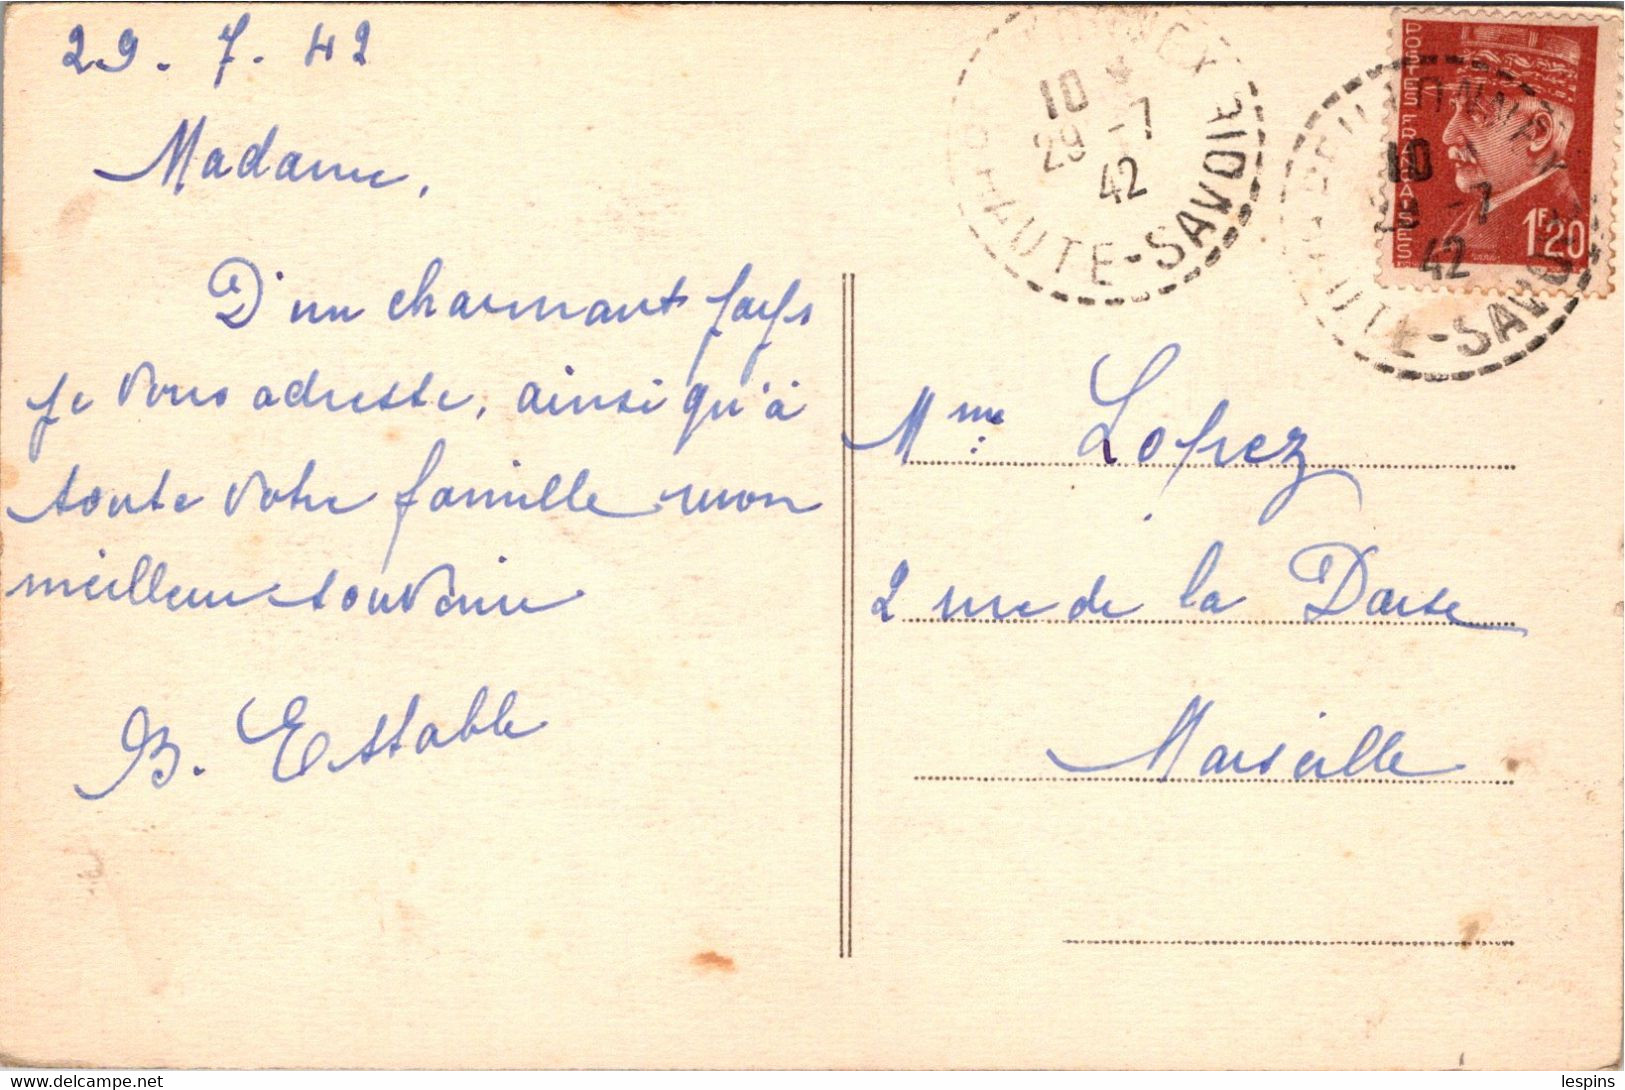 29. 7. 42
Madame,
D'un charmant pays
je vous adresse, ainsi qu'à
toute votre famille mon
meilleur souvenir
B. Estable
10
29 -7
42
HAUTE-SAVOIE
POSTES FRANÇAISES
1F20
10
29 -7
42
HAUTE-SAVOIE
Mme Lopez
2 rue de la Darse
Marseille
lespins